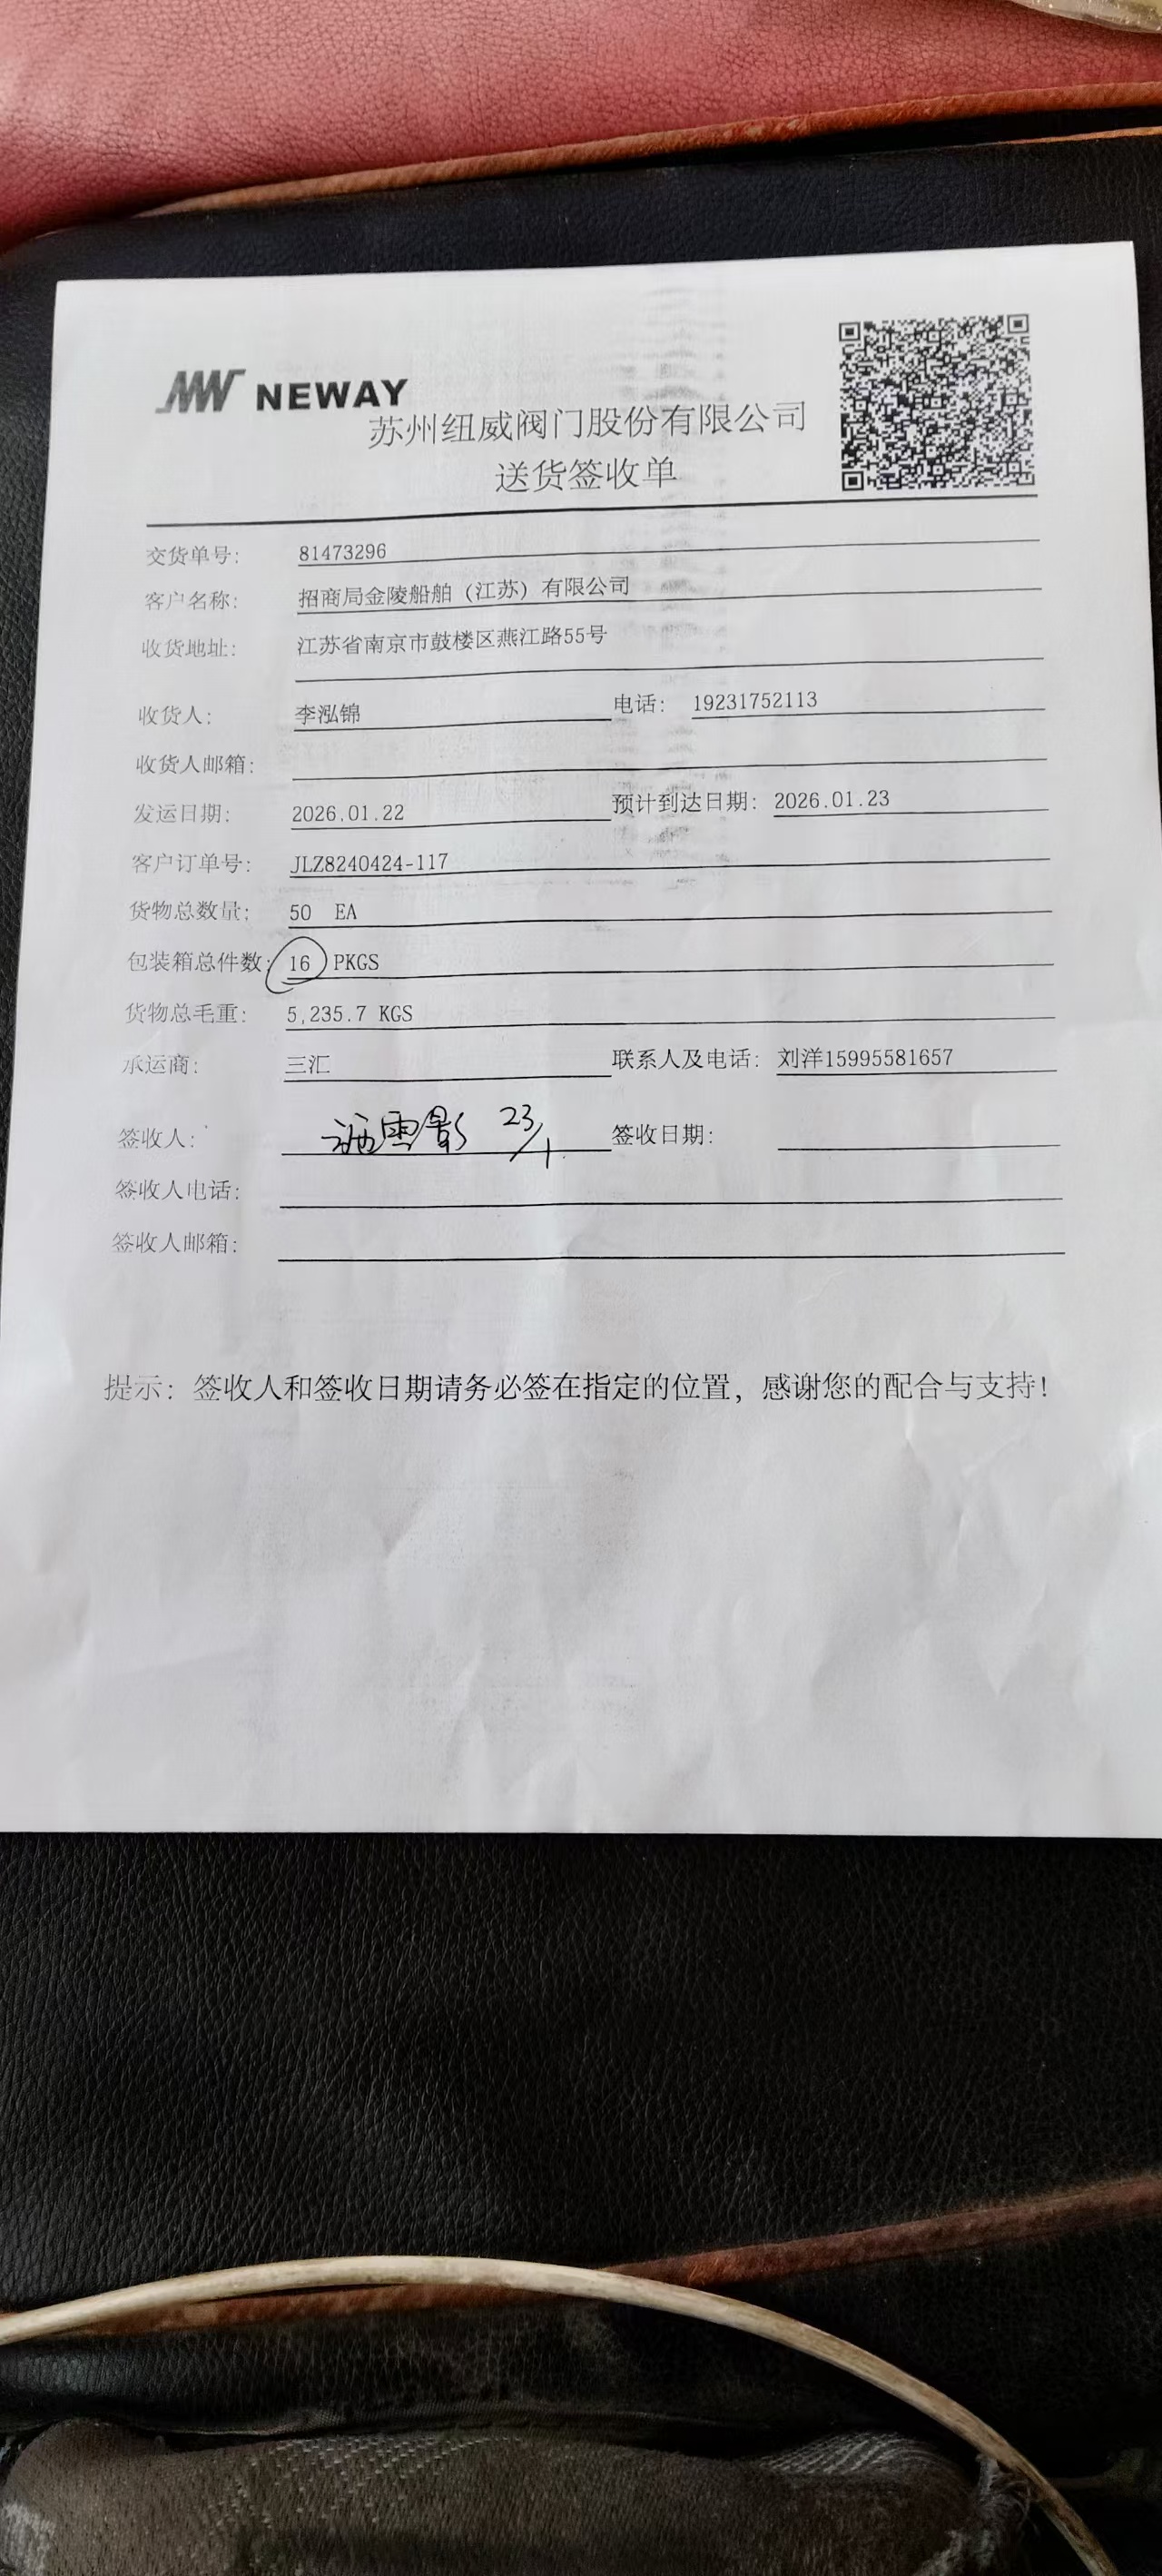 NEWAY
苏州纽威阀门股份有限公司
送货签收单
交货单号: 81473296
客户名称: 招商局金陵船舶（江苏）有限公司
收货地址: 江苏省南京市鼓楼区燕江路55号
收货人: 李泓锦 电话: 19231752113
收货人邮箱:
发运日期: 2026.01.22 预计到达日期: 2026.01.23
客户订单号: JLZ8240424-117
货物总数量: 50 EA
包装箱总件数: 16 PKGS
货物总毛重: 5,235.7 KGS
承运商: 三汇 联系人及电话: 刘洋15995581657
签收人: 23/1 签收日期:
签收人电话:
签收人邮箱:
提示: 签收人和签收日期请务必签在指定的位置, 感谢您的配合与支持!